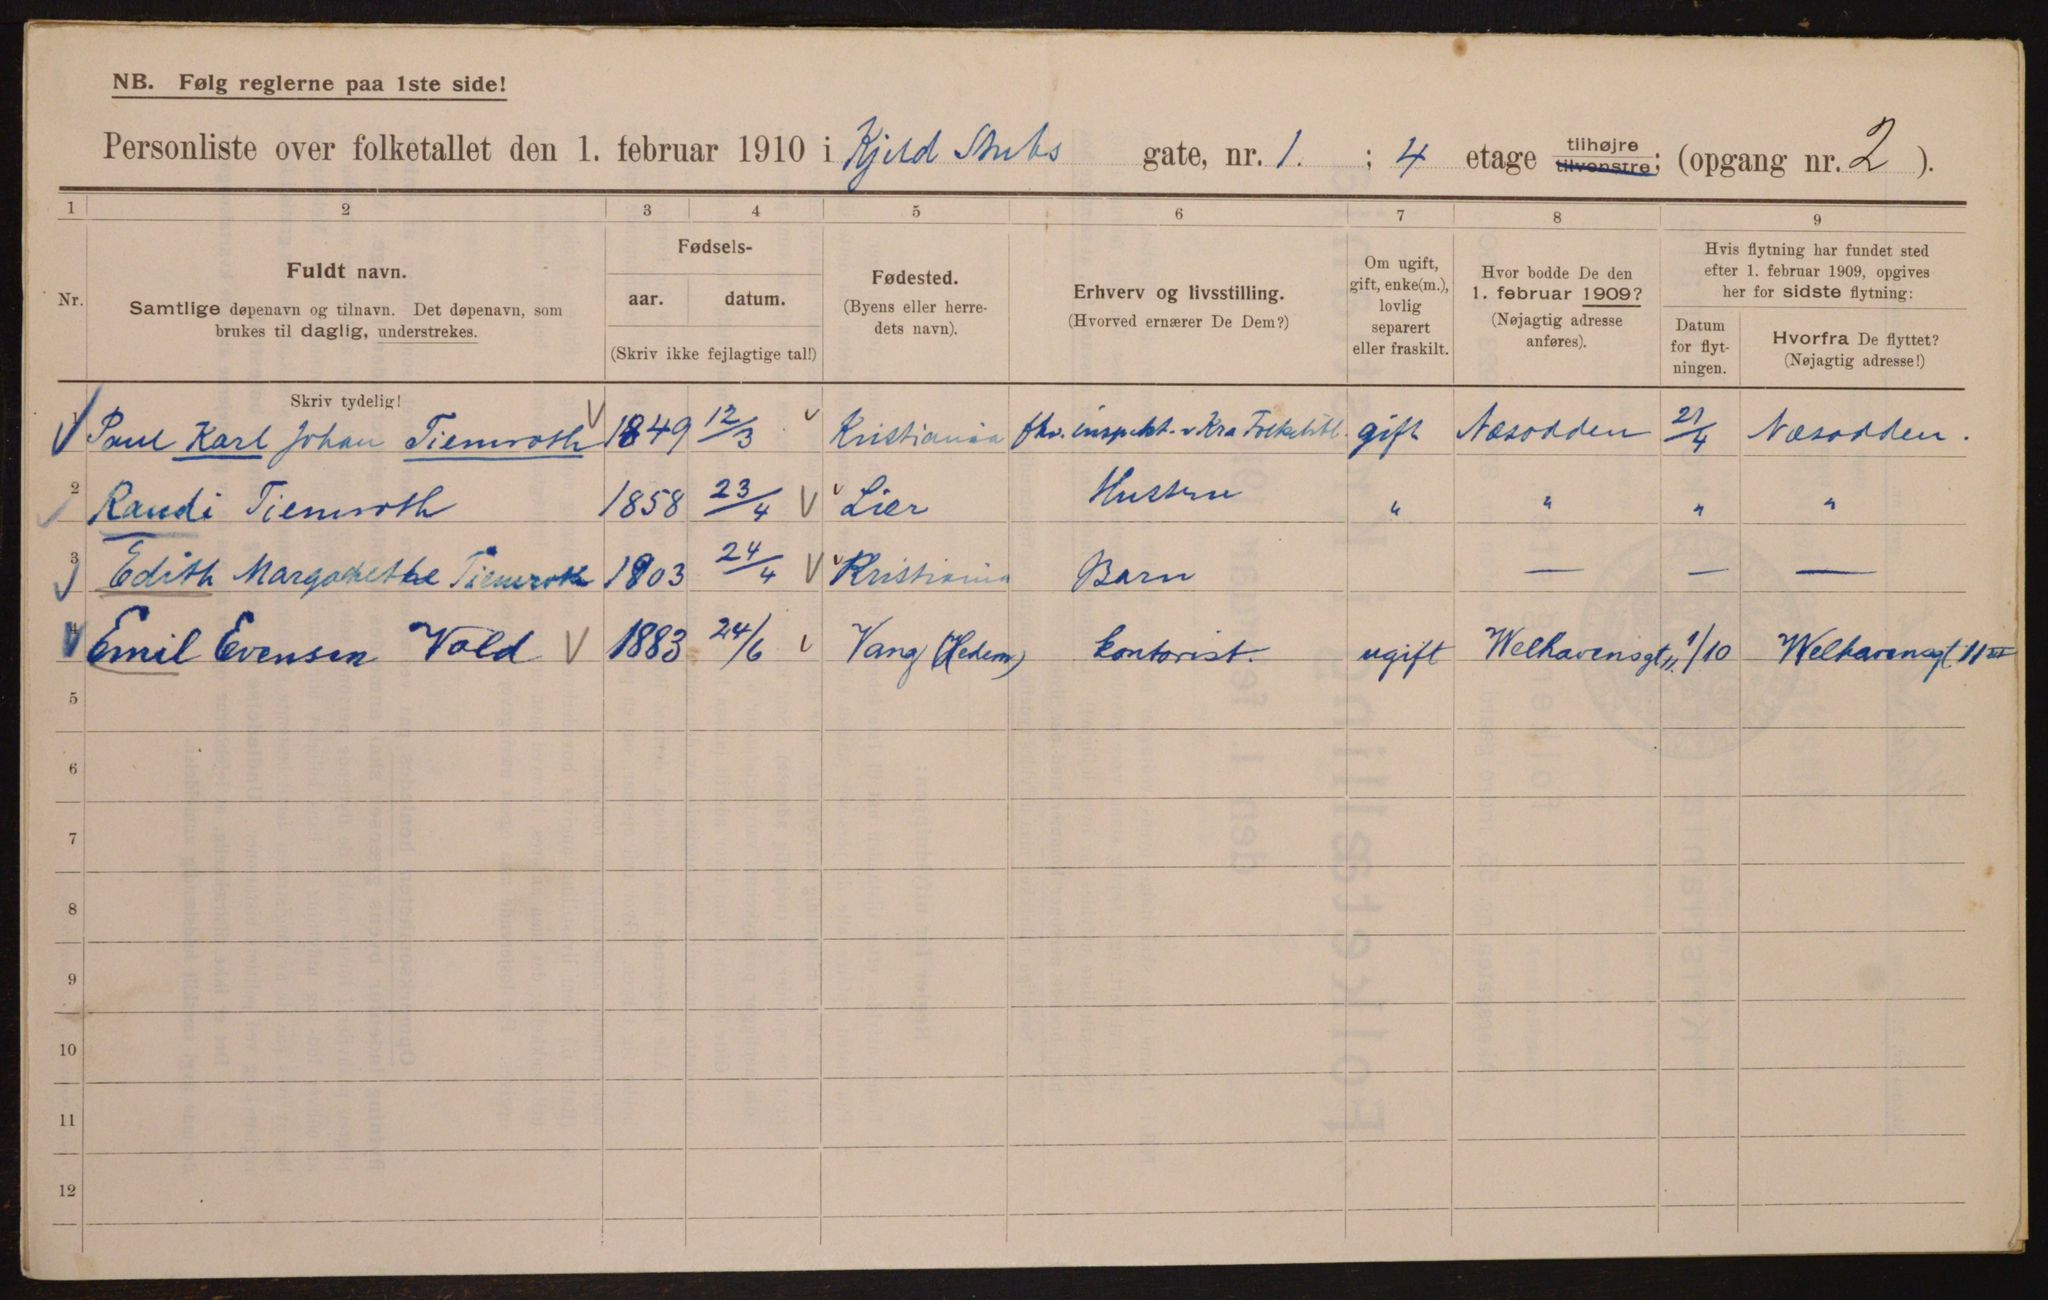 NB. Følg reglerne paa 1ste side!
Personliste over folketallet den 1. februar 1910 i Kjeld Stubs gate, nr. 1. ; 4 etage tilhøjre tilvenstre; (opgang nr. 2 ).
1 2 3 4 5 6 7 8 9
Nr.
Fuldt navn.
Samtlige døpenavn og tilnavn. Det døpenavn, som
brukes til daglig, understrekes.
Skriv tydelig!
Fødsels-
aar. datum.
(Skriv ikke fejlagtige tal!)
Fødested.
(Byens eller herre-
dets navn).
Erhverv og livsstilling.
(Hvorved ernærer De Dem?)
Om ugift,
gift, enke(m.),
lovlig
separert
eller fraskilt.
Hvor bodde De den
1. februar 1909?
(Nøjagtig adresse
anføres).
Hvis flytning har fundet sted
efter 1. februar 1909, opgives
her for sidste flytning:
Datum
for flyt-
ningen.
Hvorfra De flyttet?
(Nøjagtig adresse!)
1 Paul Karl Johan Tiemroth 1849 12/3 Kristiania fhv. inspekt. v Kra Folkebibl. gift Næsodden 21/4 Næsodden.
2 Randi Tiemroth 1858 23/4 Lier Hustru " " " "
3 Edith Margarethe Tiemroth 1903 24/4 Kristiania Barn — — —
4 Emil Evensen Vold 1883 24/6 Vang (Hedem) kontorist. ugift Welhavensgt 11 1/10 Welhavensgt 11 III
5
6
7
8
9
10
11
12